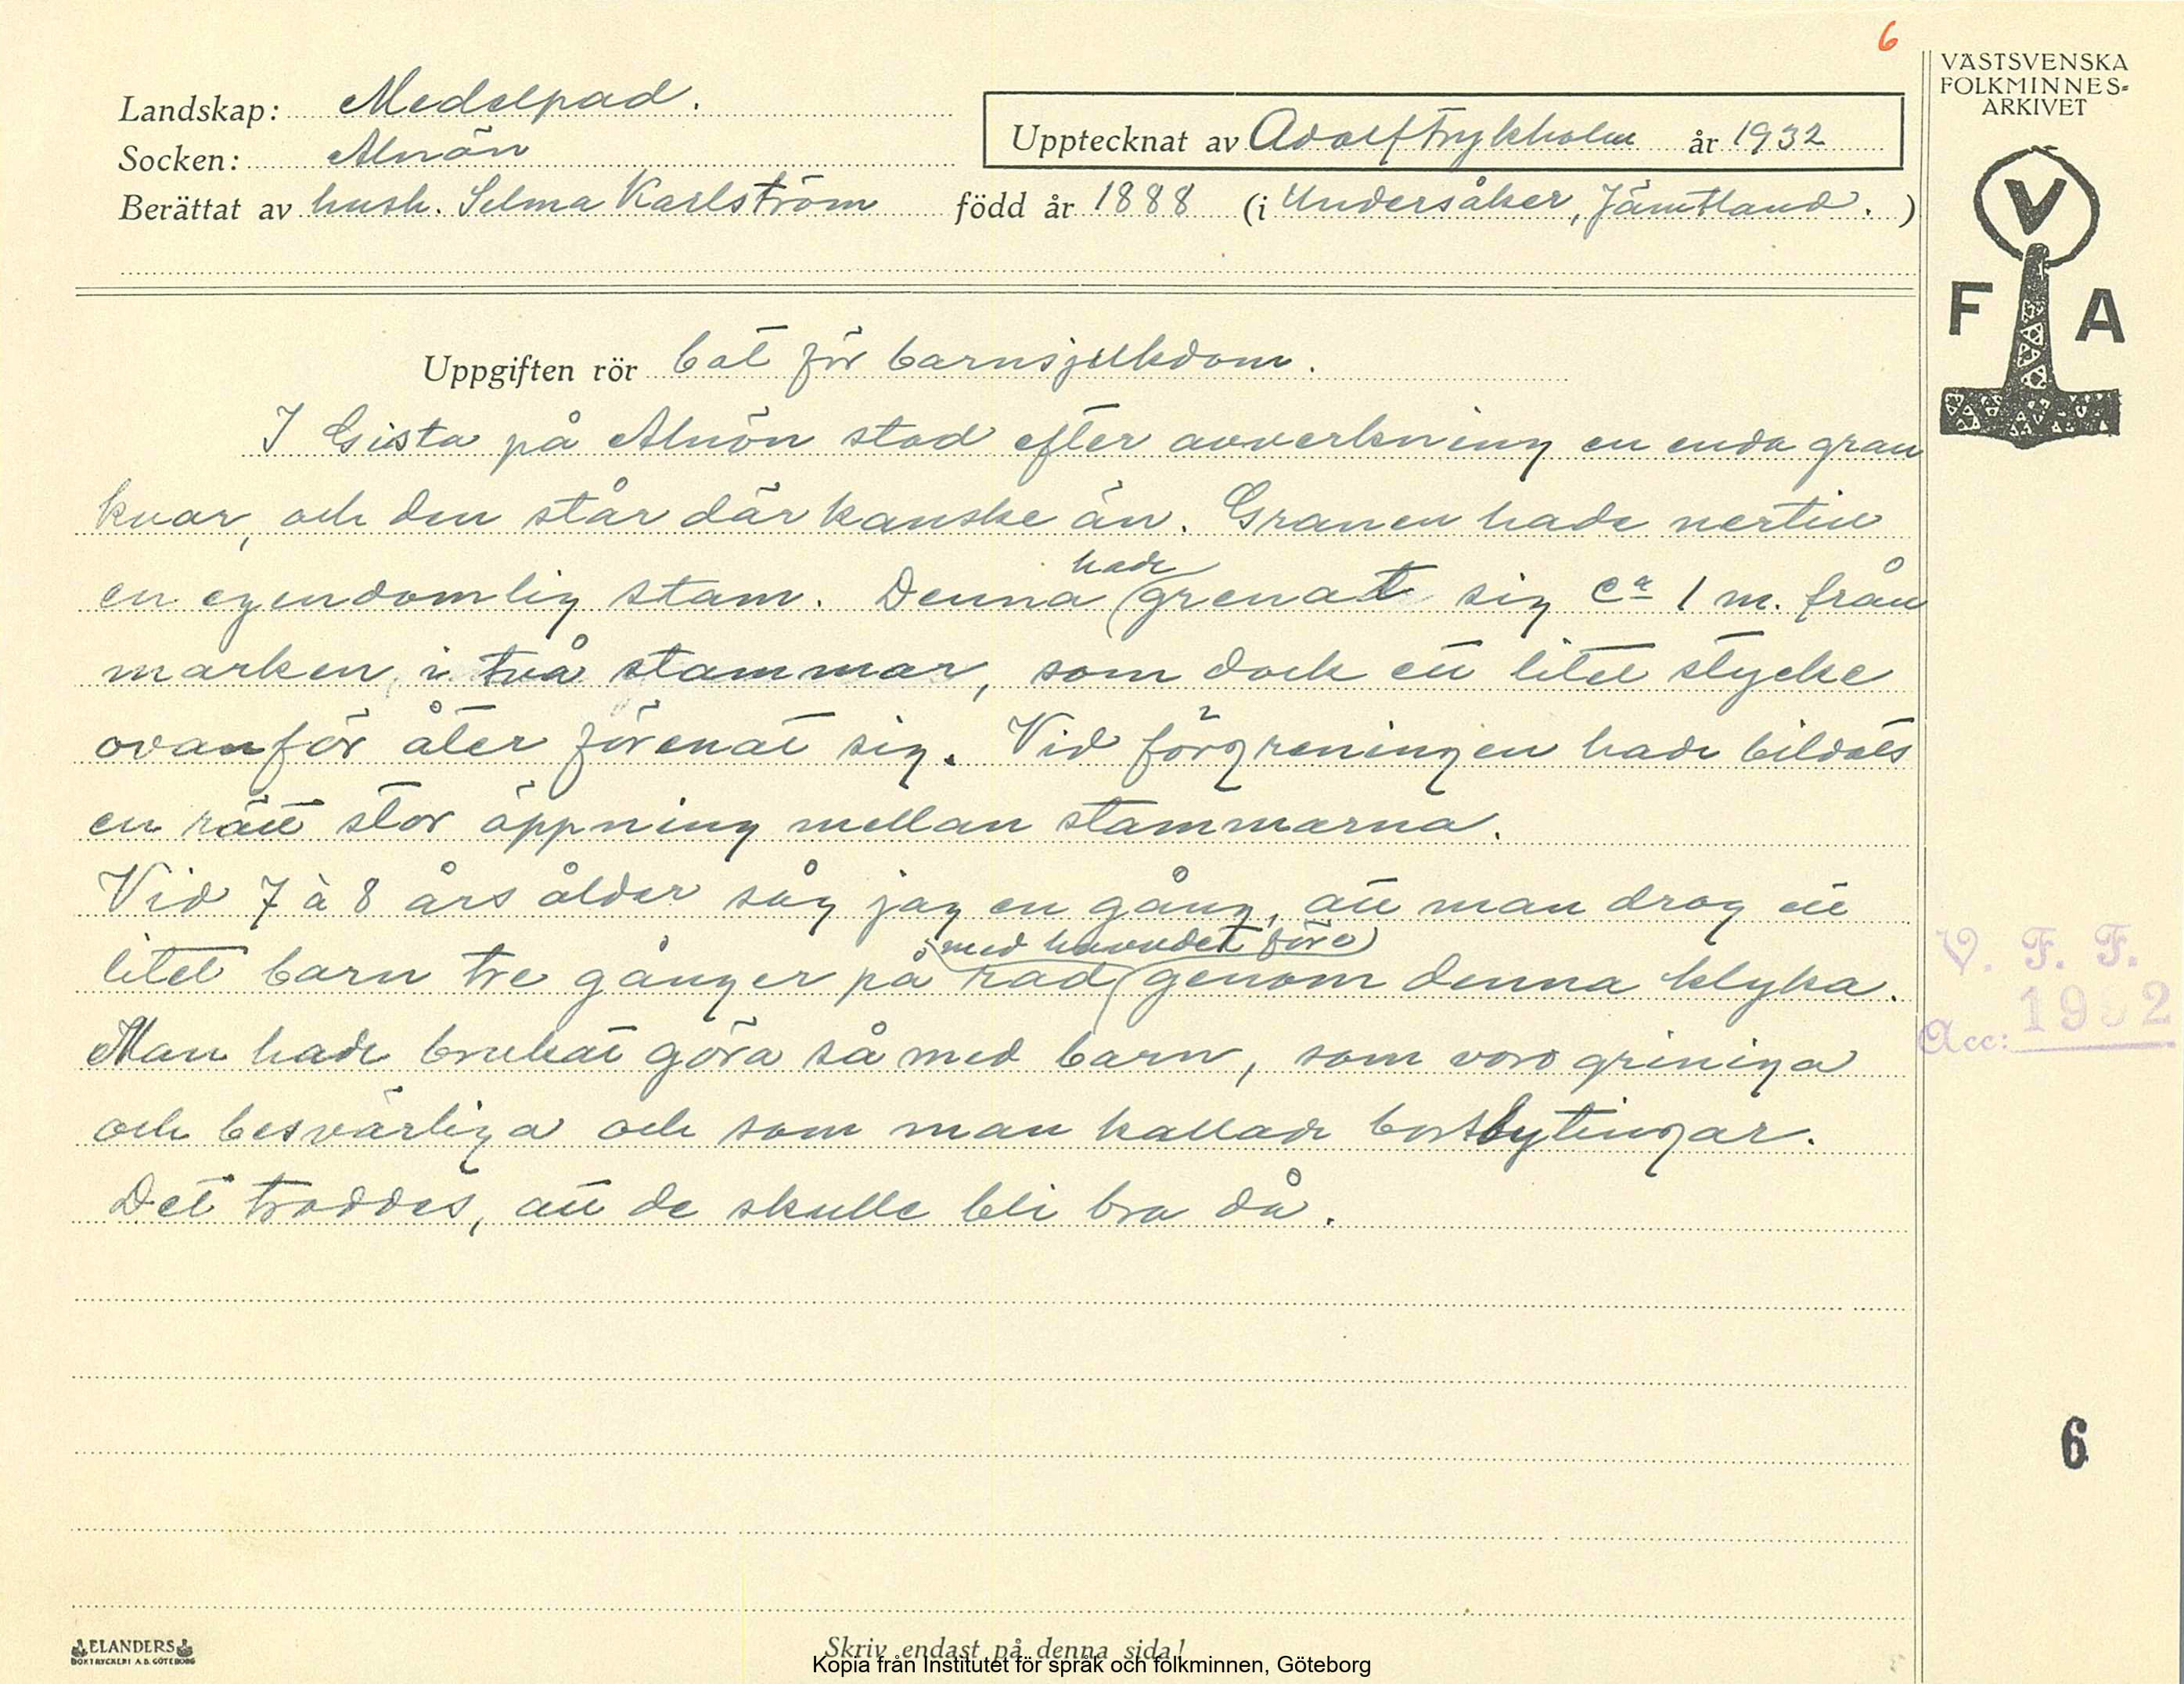 6
VÄSTSVENSKA
FOLKMINNES-
ARKIVET
Landskap: Medelpad.
Socken: Alnön
Upptecknat av Adolf Frykholm år 1932
Berättat av hush. Selma Karlström född år 1888 (i Undersåker, Jämtland.)
V
F A
Uppgiften rör bot för barnsjukdom.
I Gista på Alnön stod efter avverkning en enda gran
kvar, och den står där kanske än. Granen hade nertill
en egendomlig stam. Denna hade grenat sig ca 1 m. från
marken, i två stammar, som dock ett litet stycke
ovanför åter förenat sig. Vid förgreningen hade bildats
en rätt stor öppning mellan stammarna.
Vid 7 à 8 års ålder såg jag en gång, att man drog ett
litet barn tre gånger på rad (med huvudet före) genom denna klyka.
Man hade brukat göra så med barn, som voro griniga
och besvärliga och som man kallade bortbytingar.
Det troddes, att de skulle bli bra då.
V. F. F.
Acc: 1932
6
ELANDERS
BOKTRYCKERI A.B. GÖTEBORG
Skriv endast på denna sida!
Kopia från Institutet för språk och folkminnen, Göteborg